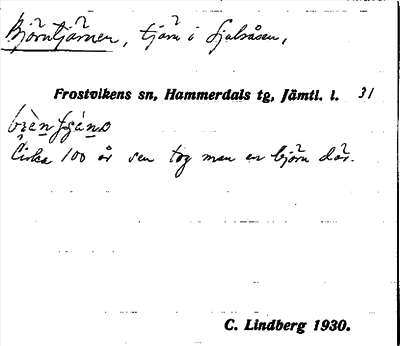 Björntjärnen, tjärn i Sjulsåsen,
Frostvikens sn, Hammerdals tg, Jämtl. l. 31
Cirka 100 år sen tog man en björn där.
C. Lindberg 1930.